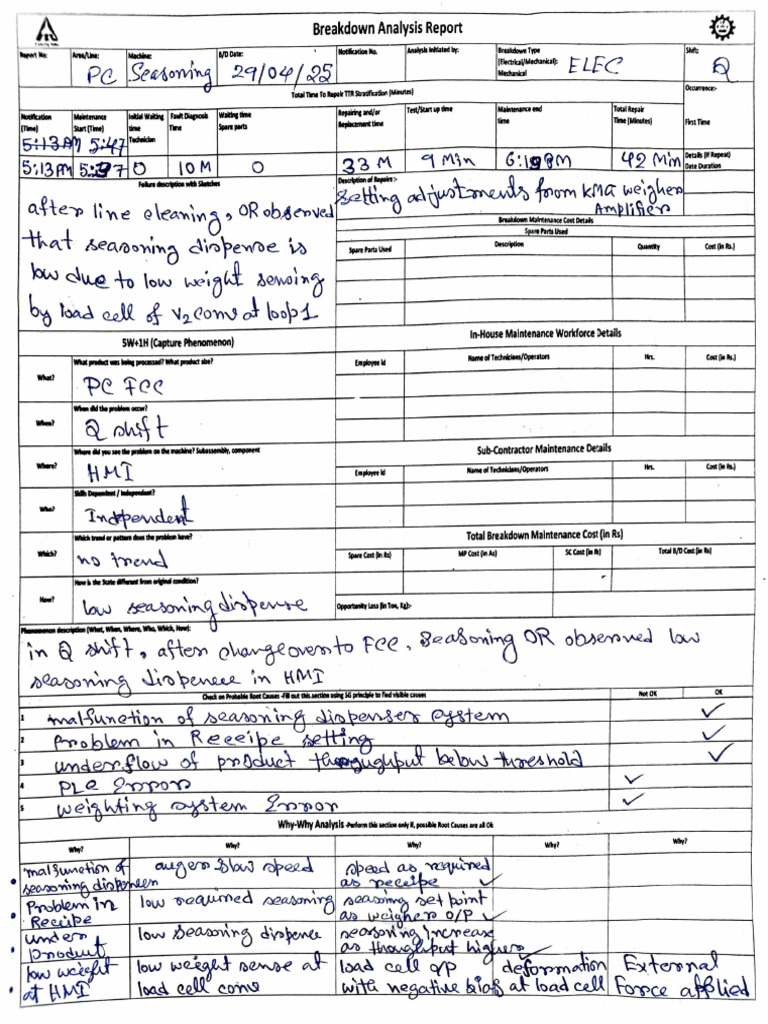 Breakdown Analysis Report
Report No: Area/Line: Machine: B/D Date: Notification No. Analysis Initiated by: Breakdown Type (Electrical/Mechanical): Mechanical Shift:
PC Seasoning 29/04/25 ELEC Q
Total Time To Repair TTR Stratification (Minutes) Occurrence:-
Notification (Time) Maintenance Start (Time) Initial Waiting time Technician Fault Diagnosis Time Waiting time Spare parts Repairing and/or Replacement time Test/Start up time Maintenance end time Total Repair Time (Minutes) First Time
5:13PM 5:47
5:13PM 0 10 M 0 33 M 9 Min 42 Min Details (If Repeat) Date Duration
Failure description with Sketches
after line cleaning, OR observed
that seasoning dispense is
low due to low weight sensing
by load cell of V2 conv at loop 1
Description of Repairs:-
Setting adjustments from KMG weigher
Amplifier
Breakdown Maintenance Cost Details
Spare Parts Used
Spare Parts Used Description Quantity Cost (in Rs.)
5W+1H (Capture Phenomenon)
What? What product was being processed? What product size?
PC FCC
When? When did the problem occur?
Q shift
Where? Where did you see the problem on the machine? Subassembly, component
HMI
Who? Skills Dependent / Independent?
Indpendent
Which? Which trend or pattern does the problem have?
no trend
How? How is the State different from original condition?
low seasoning dispense
In-House Maintenance Workforce Details
Employee Id Name of Technicians/Operators Hrs. Cost (in Rs.)
Sub-Contractor Maintenance Details
Employee Id Name of Technicians/Operators Hrs. Cost (in Rs.)
Total Breakdown Maintenance Cost (in Rs)
Spare Cost (in Rs) MP Cost (in Rs) SC Cost (in Rs) Total B/D Cost (in Rs)
Opportunity Loss (in Ton, Kg):-
Phenomenon description (What, When, Where, Who, Which, How):
in Q shift, after changeover to FCC, Seasoning OR observed low
seasoning dispence in HMI
Check on Probable Root Causes -Fill out this section using 5G principle to find visible causes Not OK OK
1 malfunction of seasoning dispenser system ✓
2 Problem in Receipe setting ✓
3 underflow of product throughput below threshold ✓
4 PLC Error ✓
5 weighting system Error ✓
Why-Why Analysis -Perform this section only if, possible Root Causes are all Ok
Why? Why? Why? Why? Why?
malfunction of seasoning dispencer auger slow speed speed as required as receipe ✓
Problem in Receipe low required seasoning seasoning set point as weigher O/P ✓
under product low seasoning dispence seasoning increase as thoughput higher ✓
low weight at HMI low weight sense at load cell conv load cell O/P with negative bias deformation at load cell External Force applied